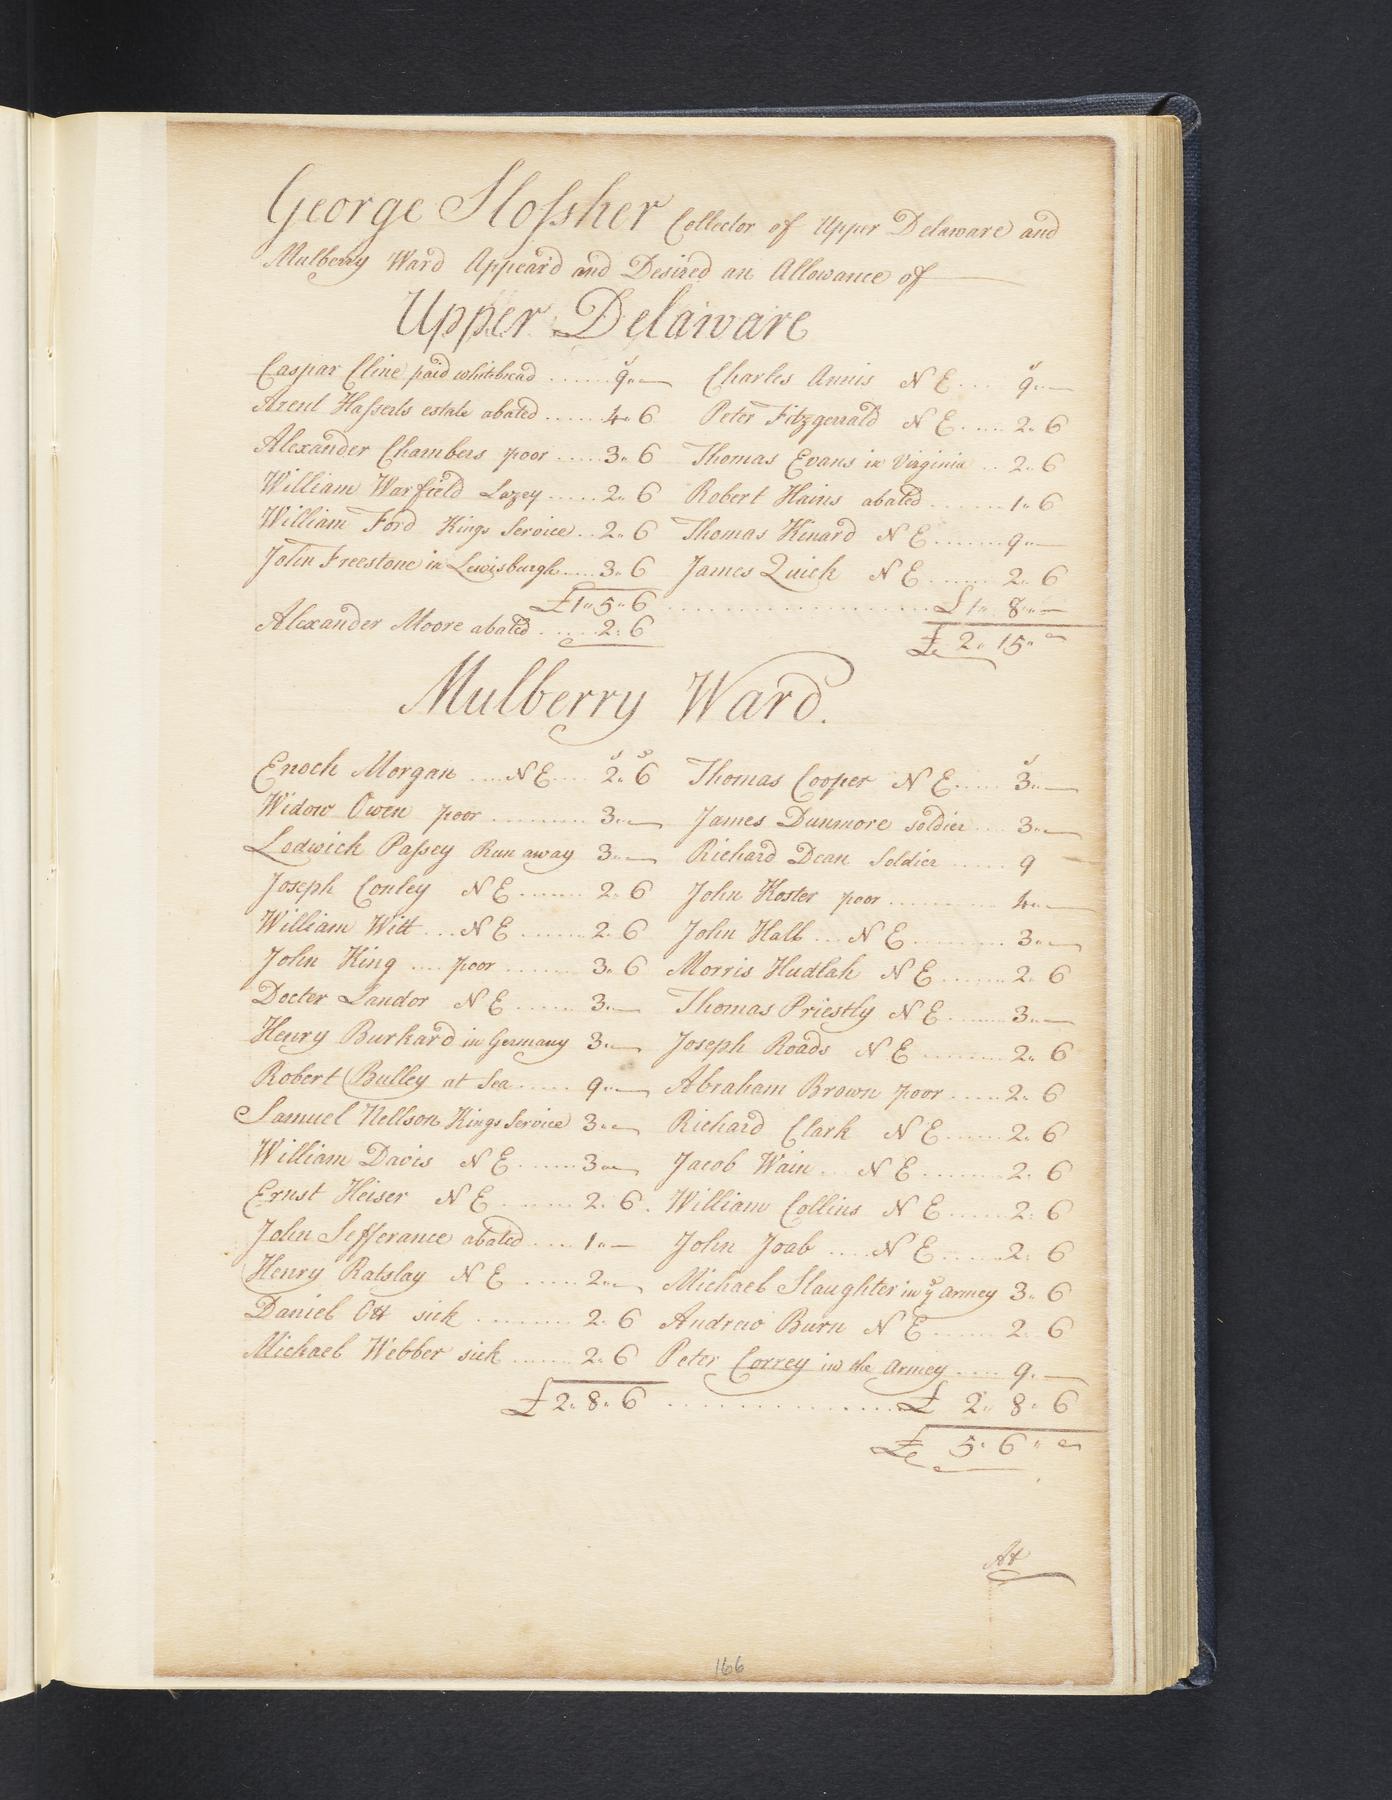 George Slossher Collector of Upper Delaware and
Mulberry Ward Appeard and Desired an Allowance of
Upper Delaware
s s
Caspar Cline paid whitebread ...... 9"— Charles Annis N E ... 9"—
Arent Hasserts estate abated ..... 4" 6 Peter Fitzgerrald N E ..... 2" 6
Alexander Chambers poor ..... 3" 6 Thomas Evans in Virginia .. 2" 6
William Warfield Lazey ..... 2" 6 Robert Hains abated ....... 1" 6
William Ford Kings Service .. 2" 6 Thomas Kinard N E ....... 9"—
John Freestone in Lewisburgh .... 3" 6 James Quick N E ...... 2" 6
£1" 5" 6 ........................ £1" 8"—
Alexander Moore abated ..... 2" 6 £ 2" 15"
Mulberry Ward.
s s s
Enoch Morgan .... N E .... 2" 6 Thomas Cooper N E ..... 3"—
Widow Owen poor .......... 3"— James Dunmore soldier ... 3"—
Lodwick Passey Run away 3"— Richard Dean Soldier ...... 9
Joseph Conley N E ....... 2" 6 John Koster poor .......... 4"—
William Witt ... N E ....... 2" 6 John Hall ... N E .......... 3"—
John King .... poor ........ 3" 6 Morris Hudlah N E ...... 2" 6
Docter Sandor N E ...... 3"— Thomas Priestly N E ...... 3"—
Henry Burkard in Germany 3"— Joseph Roads N E ........ 2" 6
Robert Bulley at Sea ..... 9"— Abraham Brown poor ..... 2" 6
Samuel Nellson Kings Service 3"— Richard Clark N E ...... 2" 6
William Davis N E ...... 3"— Jacob Wain ... N E ........ 2" 6
Ernst Heiser N E ........ 2" 6. William Collins N E ...... 2" 6
John Jefferance abated .... 1"— John Joab .... N E ...... 2" 6
Henry Ratslay N E ..... 2"— Michael Slaughter in ye armey 3" 6
Daniel Ott sick ......... 2" 6 Andrew Burn N E ...... 2" 6
Michael Webber sick ...... 2" 6 Peter Correy in the armey .... 9"—
£2" 8" 6 .................. £ 2" 8" 6
£ 5" 6"
At
166